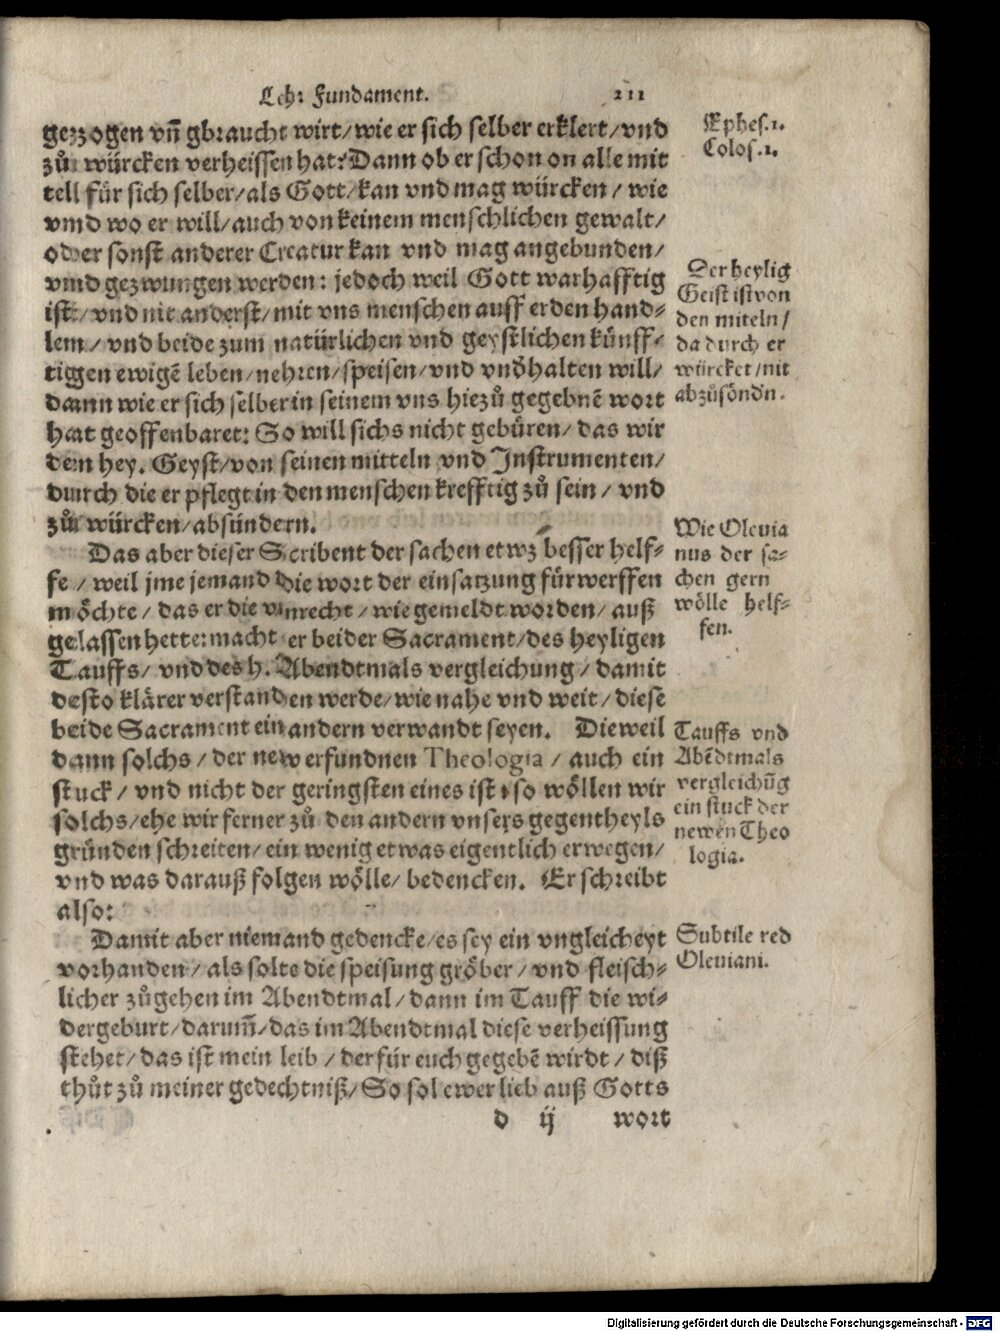 Lehr Fundament. 211
gezogen vñ gbraucht wirt/wie er sich selber erklert/vnd
zů würcken verheissen hat? Dann ob er schon on alle mit
tell für sich selber/als Gott/kan vnd mag würcken/ wie
vnd wo er will/auch von keinem menschlichen gewalt/
oder sonst anderer Creatur kan vnd mag angebunden/
vnd gezwungen werden: jedoch weil Gott warhafftig
ist/ vnd nit anderst/mit vns menschen auff erden hand-
len/ vnd beide zum natürlichen vnd geystlichen künff-
tiggen ewigē leben/nehren/speisen/vnd vnd̄halten will/
dann wie er sich selber in seinem vns hiezů gegebnē wort
hat geoffenbaret: So will sichs nicht gebüren/ das wir
dem hey. Geyst/von seinen mitteln vnd Instrumenten/
durch die er pflegt in den menschen krefftig zů sein/ vnd
zů würcken/absündern.
Das aber dieser Scribent der sachen etwz besser helf-
fe/ weil jme jemand die wort der einsatzung fürwerffen
möchte/ das er die vnrecht/ wie gemeldt worden/ auß
gelassen hette: macht er beider Sacrament/des heyligen
Tauffs/ vnd des h. Abendtmals vergleichung/ damit
desto klärer verstanden werde/wie nahe vnd weit/ diese
beide Sacrament ein andern verwandt seyen. Dieweil
dann solchs/ der new erfundnen Theologia/ auch ein
stuck/ vnd nicht der geringsten eines ist: so wöllen wir
solchs/ehe wir ferner zů den andern vnsers gegentheyls
gründen schreiten/ein wenig etwas eigentlich erwegen/
vnd was darauß folgen wölle/ bedencken. Er schreibt
also:
Damit aber niemand gedencke/es sey ein vngleicheyt
vorhanden/ als solte die speisung gröber/ vnd fleisch-
licher zůgehen im Abendtmal/dann im Tauff die wi-
dergeburt/darum̄/das im Abendtmal diese verheissung
stehet/das ist mein leib/ der für euch gegebē wirdt/ diß
thůt zů meiner gedechtniß/So sol ewer lieb auß Gotts
d ij wort
Ephes.1.
Colos.1.
Der heylig
Geist ist von
den miteln/
da durch er
würcket/nit
abzůsöndn.
Wie Oleuia
nus der sa-
chen gern
wölle helf-
fen.
Tauffs vnd
Abēdtmals
vergleichūg
ein stuck der
newen Theo
logia.
Subtile red
Oleuiani.
Digitalisierung gefördert durch die Deutsche Forschungsgemeinschaft - DFG